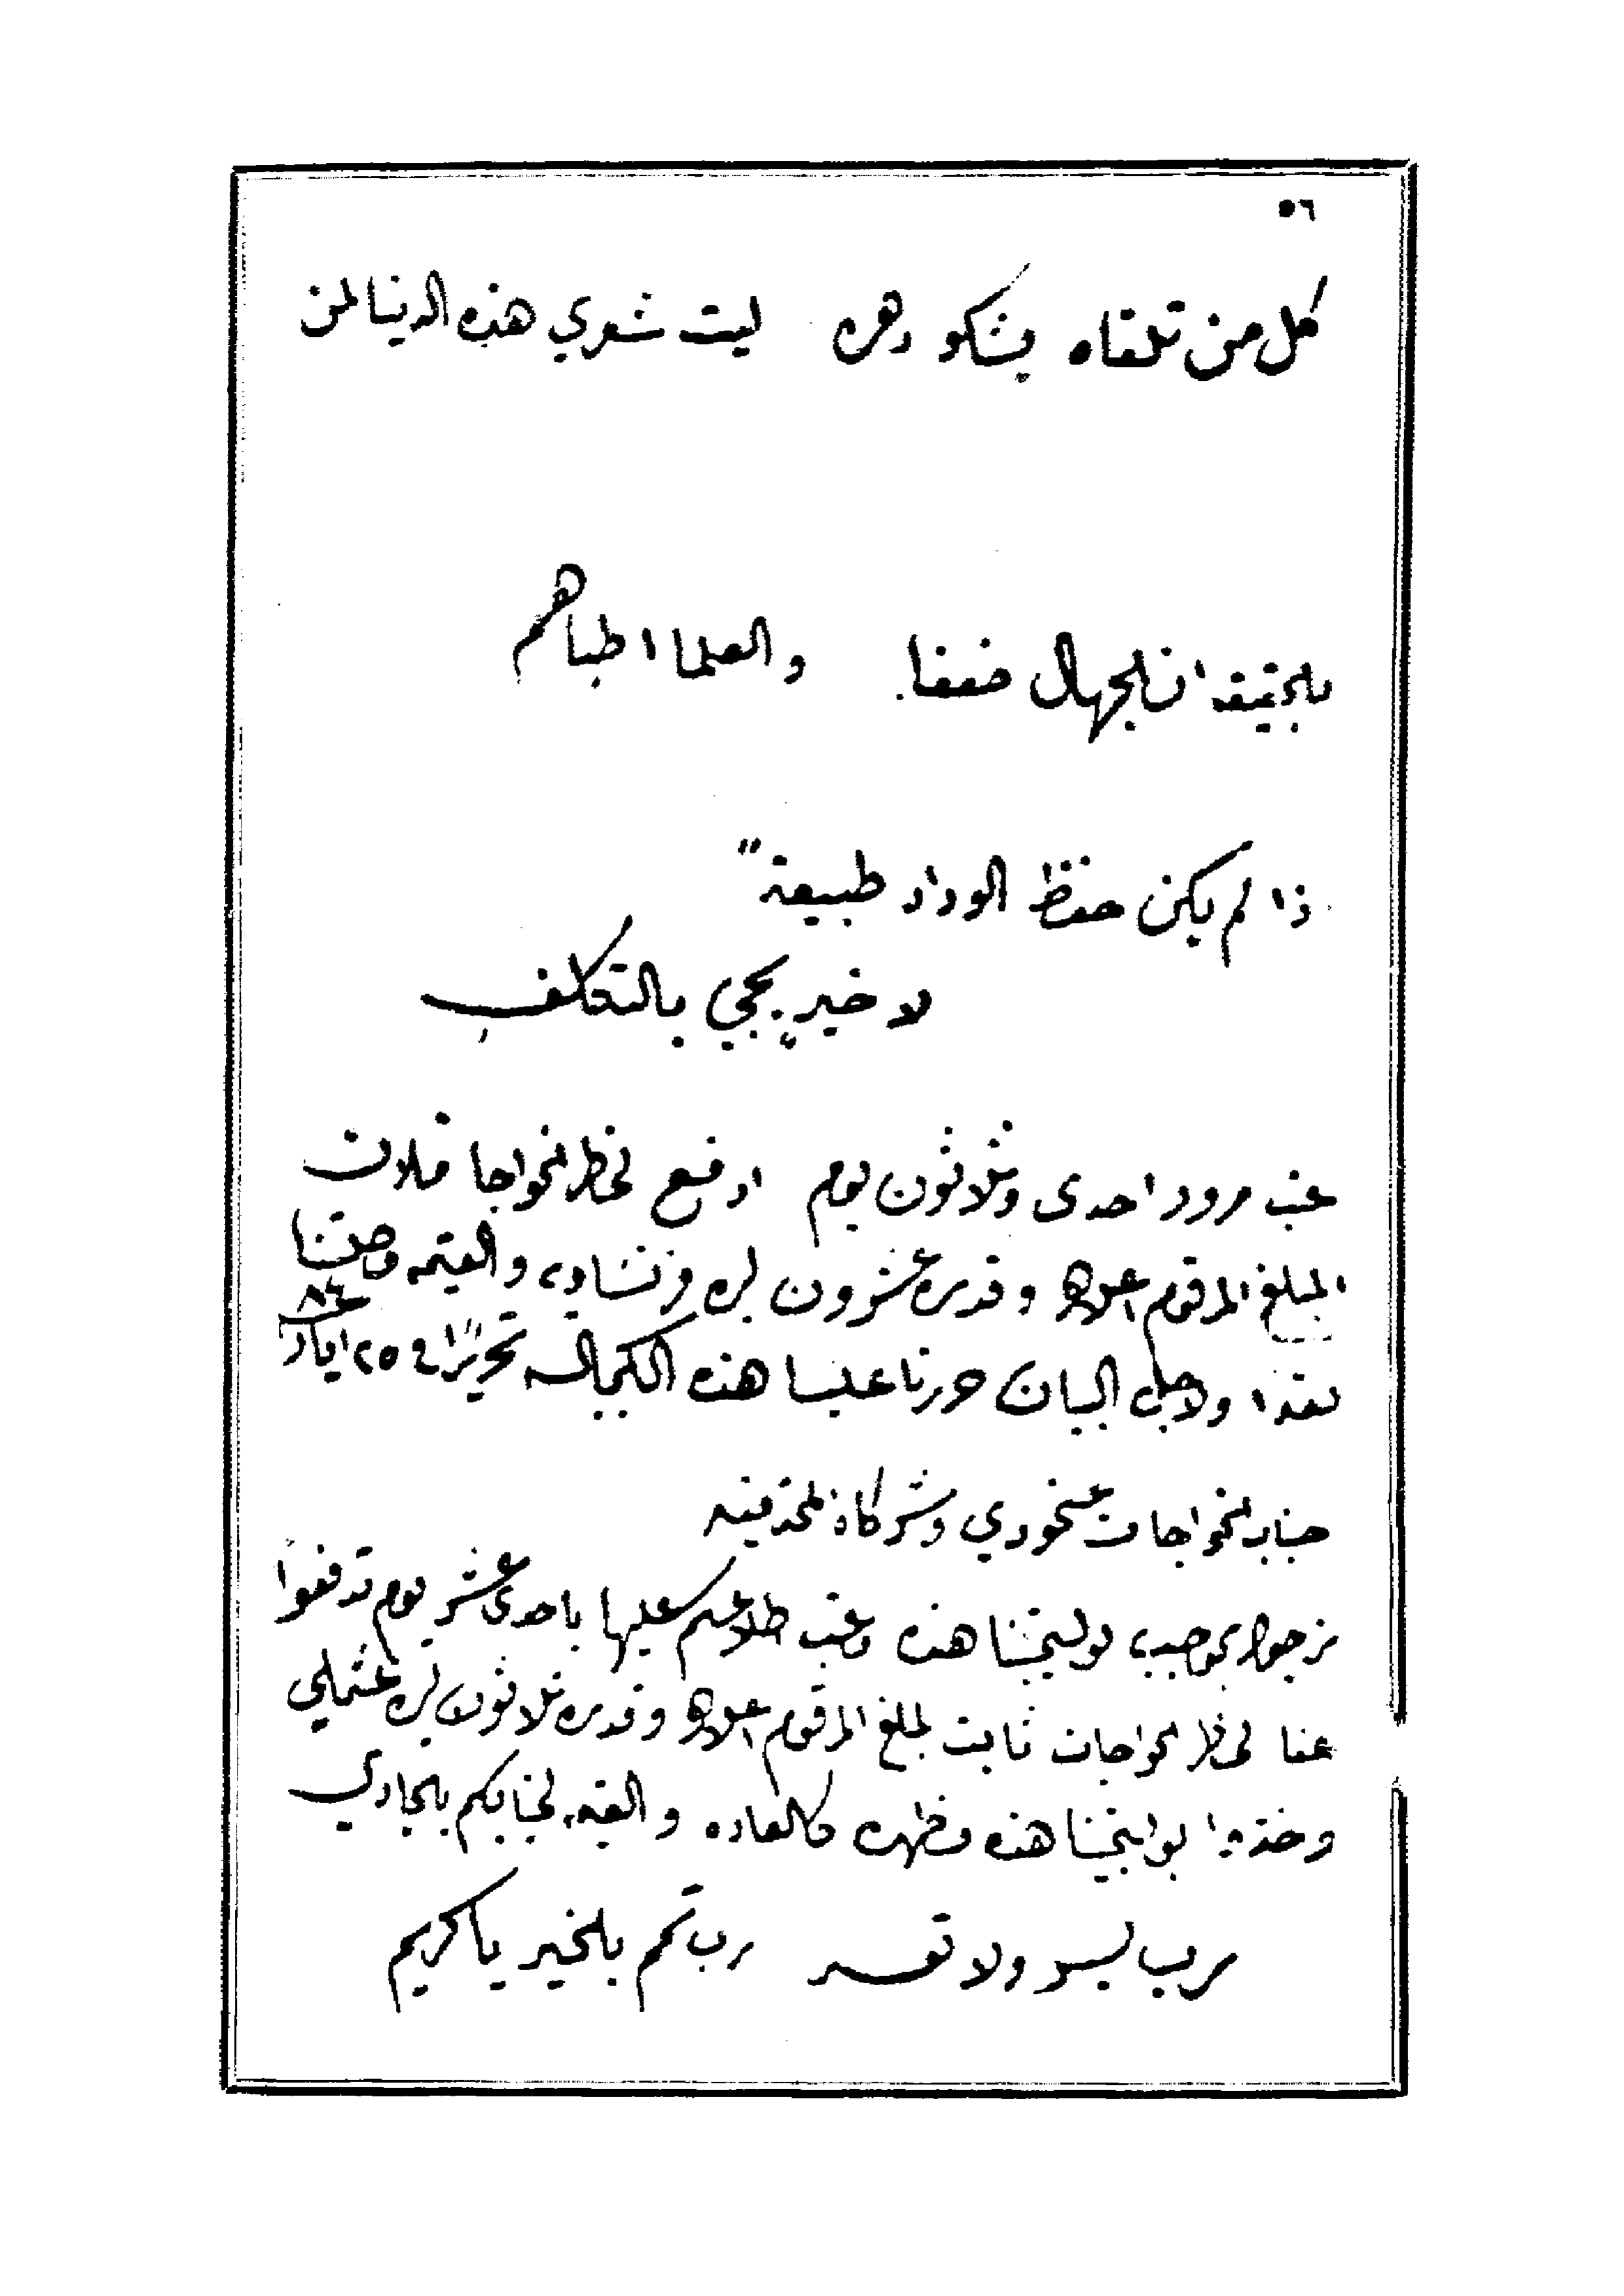 ٥٦
كل من تلقاه يشكو دهره ليت شعري هذه الدنيا لمن
بلحقيقه ان لجهال ضعفا والعلما اطباهم
ذا لم يكن حفظ الوداد طبيعة"
لا خير يجي بالتكلف
غب مرور احدى وثلاثون يوم ادفع لخاطر لخواجا فلان
المبلغ المرقوم اعلاه وقدره عشرون لره فرنساويه والقيمه وصلتنا
نقدا ولاجل البيان حررنا علينا هذه الكمبياله تحريرًا في ٢٥ ايار ٨٤
جناب لخواجات وشركاه لمحترمينه
نرجوا بموجب بوليتجتنا هذه وغب اطلاعكم عليها باحدى عشر يوم تدفعوا
عنا لخاطر لخواجات ثابت لمبلغ المرقوم اعلاه وقدره ثلاثون لره عثملي
وخذوا بوليتجتنا هذه مظهره كالعاده والقيمه لجنابكم بلجاري
رب يسر ولا تعسر رب تمم بلخير يا كريم